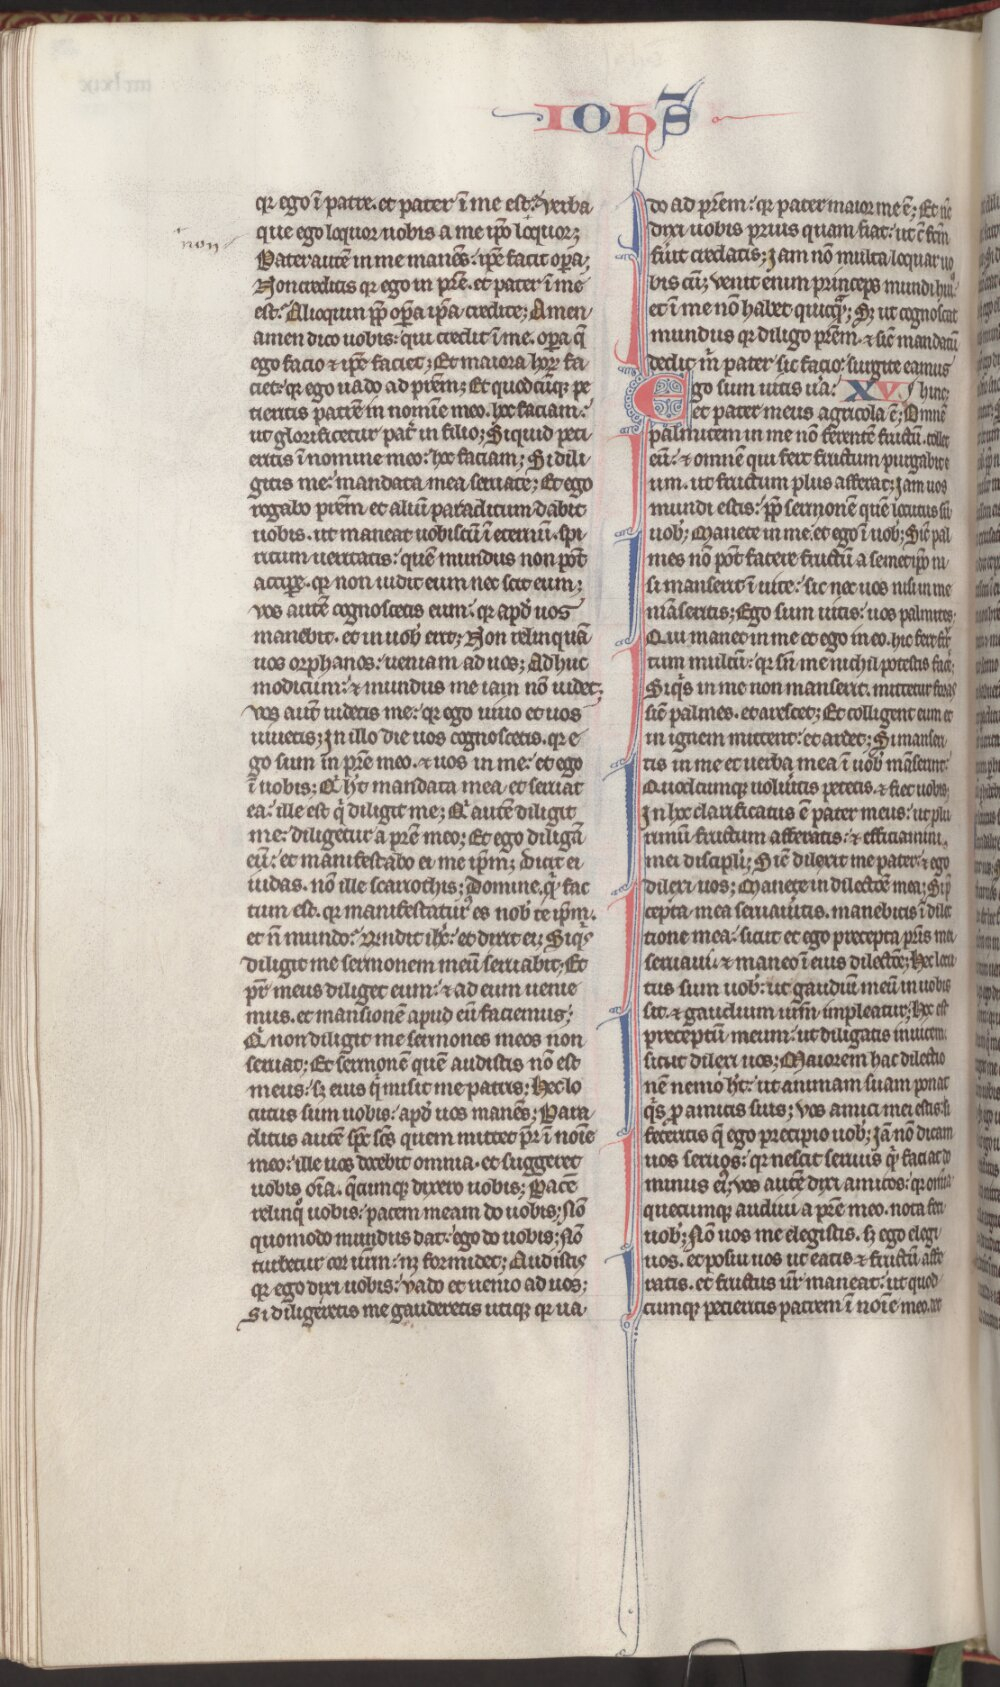 IOHS
qr ego ī patre. et pater ī me est. Verba
que ego loquor uobis a me ip̄o loquor;
non
Pater autē in me manēs. ip̄e facit op̄a;
Non creditis qr ego in pr̄e. et pater ī me
est. Alioquin pp̄ op̄a ip̄a credite; Amen
amen dico uobis. qui credit ī me. op̄a q̄
ego facio & ip̄e faciet; Et maiora hor̄ fa
ciet. qr ego uado ad pr̄em; Et quodcūq; pe
tieritis patrē in nomīe meo. hoc faciam.
ut glorificetur pat̄ in filio; Si quid peti
eritis ī nomine meo. hoc faciam; Si dili
gitis me. mandata mea seruate; Et ego
rogabo pr̄em et aliū paraclitum dabit
uobis. ut maneat uobiscū ī eternū. spi
ritum ueritatis. quē mundus non pōt
accip̄e. qr non uidit eum nec scit eum;
vos autē cognoscetis eum. qr apd̄ uos
manebit. et in uob̄ erit; Non relinquā
uos orphanos. ueniam ad uos; Adhuc
modicum. & mundus me iam nō uidet;
vos aut̄ uidetis me. qr ego uiuo et uos
uiuetis; In illo die uos cognoscetis. qr e
go sum in pr̄e meo. & uos in me. et ego
ī uobis; Q̄ ht̄ mandata mea et seruat
ea. ille est q̄ diligit me; Q̄ autē diligit
me. diligetur a pr̄e meo; Et ego diligā
eū. et manifestabo ei me ip̄m; dicit ei
iudas. nō ille scarrothis; Domine. q̄ fac
tum est. qr manifestatur̄ es nob̄ te ip̄m.
et n̄ mundo. Rn̄dit ih̄c. et dixit ei; Siq̄s
diligit me sermonem meū seruabit; Et
pr̄ meus diliget eum. & ad eum uenie
mus. et mansionē apud eū faciemus;
Q̄ non diligit me sermones meos non
seruat; Et sermonē quē audistis nō est
meus. s; eius q̄ misit me patris; Hec lo
cutus sum uobis. apd̄ uos manēs; Para
clitus autē sp̄c sc̄s quem mittet pr̄ ī noīe
meo. ille uos docebit omnia. et suggeret
uobis oīa. q̄cumq; dixero uobis; Pacē
relinq̄ uobis. pacem meam do uobis; Nō
quomodo mundus dat. ego do uobis; Nō
turbetur cor ur̄m. n; formidet; Audistis
qr ego dixi uobis. vado et uenio ad uos;
Si diligeretis me gauderetis utiq; qr ua
do ad pr̄em. qr pater maior me ē; Et nc̄
dixi uobis prius quam fiat. ut c̄ fcm̄
fūit credatis; Iam nō multa loquar uo
bis cū; venit enim princeps mundi hui
et ī me nō habet quicq̄; S; ut cognoscat
mundus qr diligo pr̄em. & sic̄ mandatū
dedit m̄ pater sic facio. surgite eamus
Ego sum uitis ua. XV. hinc;
et pater meus agricola ē; Omnē
palmitem in me nō ferentē fructū. tollet
eū. & omnē qui fert fructum purgabit e
um. ut fructum plus afferat; Iam uos
mundi estis. pp̄ sermonē quē locutus sū
uob̄; Manete in me. et ego ī uob̄; Sic̄ pal
mes nō pōt facere fructū a semetip̄o ni
si manserit ī uite. sic nec uos nisi in me
māseritis; Ego sum uitis. uos palmites;
Qui manet in me et ego in eo. hic fert fr̄c
tum multū. qr sn̄ me nichil potestis fac̄e;
Siq̄s in me non manserit. mittetur foras
sic̄ palmes. et arescet; Et colligent eum et
in ignem mittent. et ardet; Si manser
tis in me et uerba mea ī uob̄ māserint.
Quodcumque uolūitis petetis. & fiet uobis;
In hoc clarificatus ē pater meus. ut plu
rimū fructum afferatis. & efficiamini.
mei discipli; Sic̄ dilexit me pater. & ego
dilexi uos; Manete in dilectōe mea; Si p̄
cepta mea seruaūitis. manebitis ī dilec
tione mea. sicut et ego precepta pr̄is mei
seruaui. & maneo ī eius dilectōe; Hec locu
tus sum uob̄. ut gaudiū meū in uobis
sit. & gaudium ur̄m impleatur; Hoc est
preceptū meum. ut diligatis inuicem.
sicut dilexi uos; Maiorem hac dilectio
nē nemo ht̄. ut animam suam ponat
q̄s p̄ amicis suis; vos amici mei estis. si
feceritis q̄ ego precipio uob̄; Iā nō dicam
uos seruos. qr nescit seruus q̄ faciat do
minus ei; vos autē dixi amicos. qr omia
quecumq; audiui a pr̄e meo. nota feci
uob̄; Nō uos me elegistis. s; ego elegi
uos. et posui uos ut eatis & fructū affe
ratis. et fructus ur̄ maneat. ut quod
cumq; petieritis patrem ī noīe meo. det